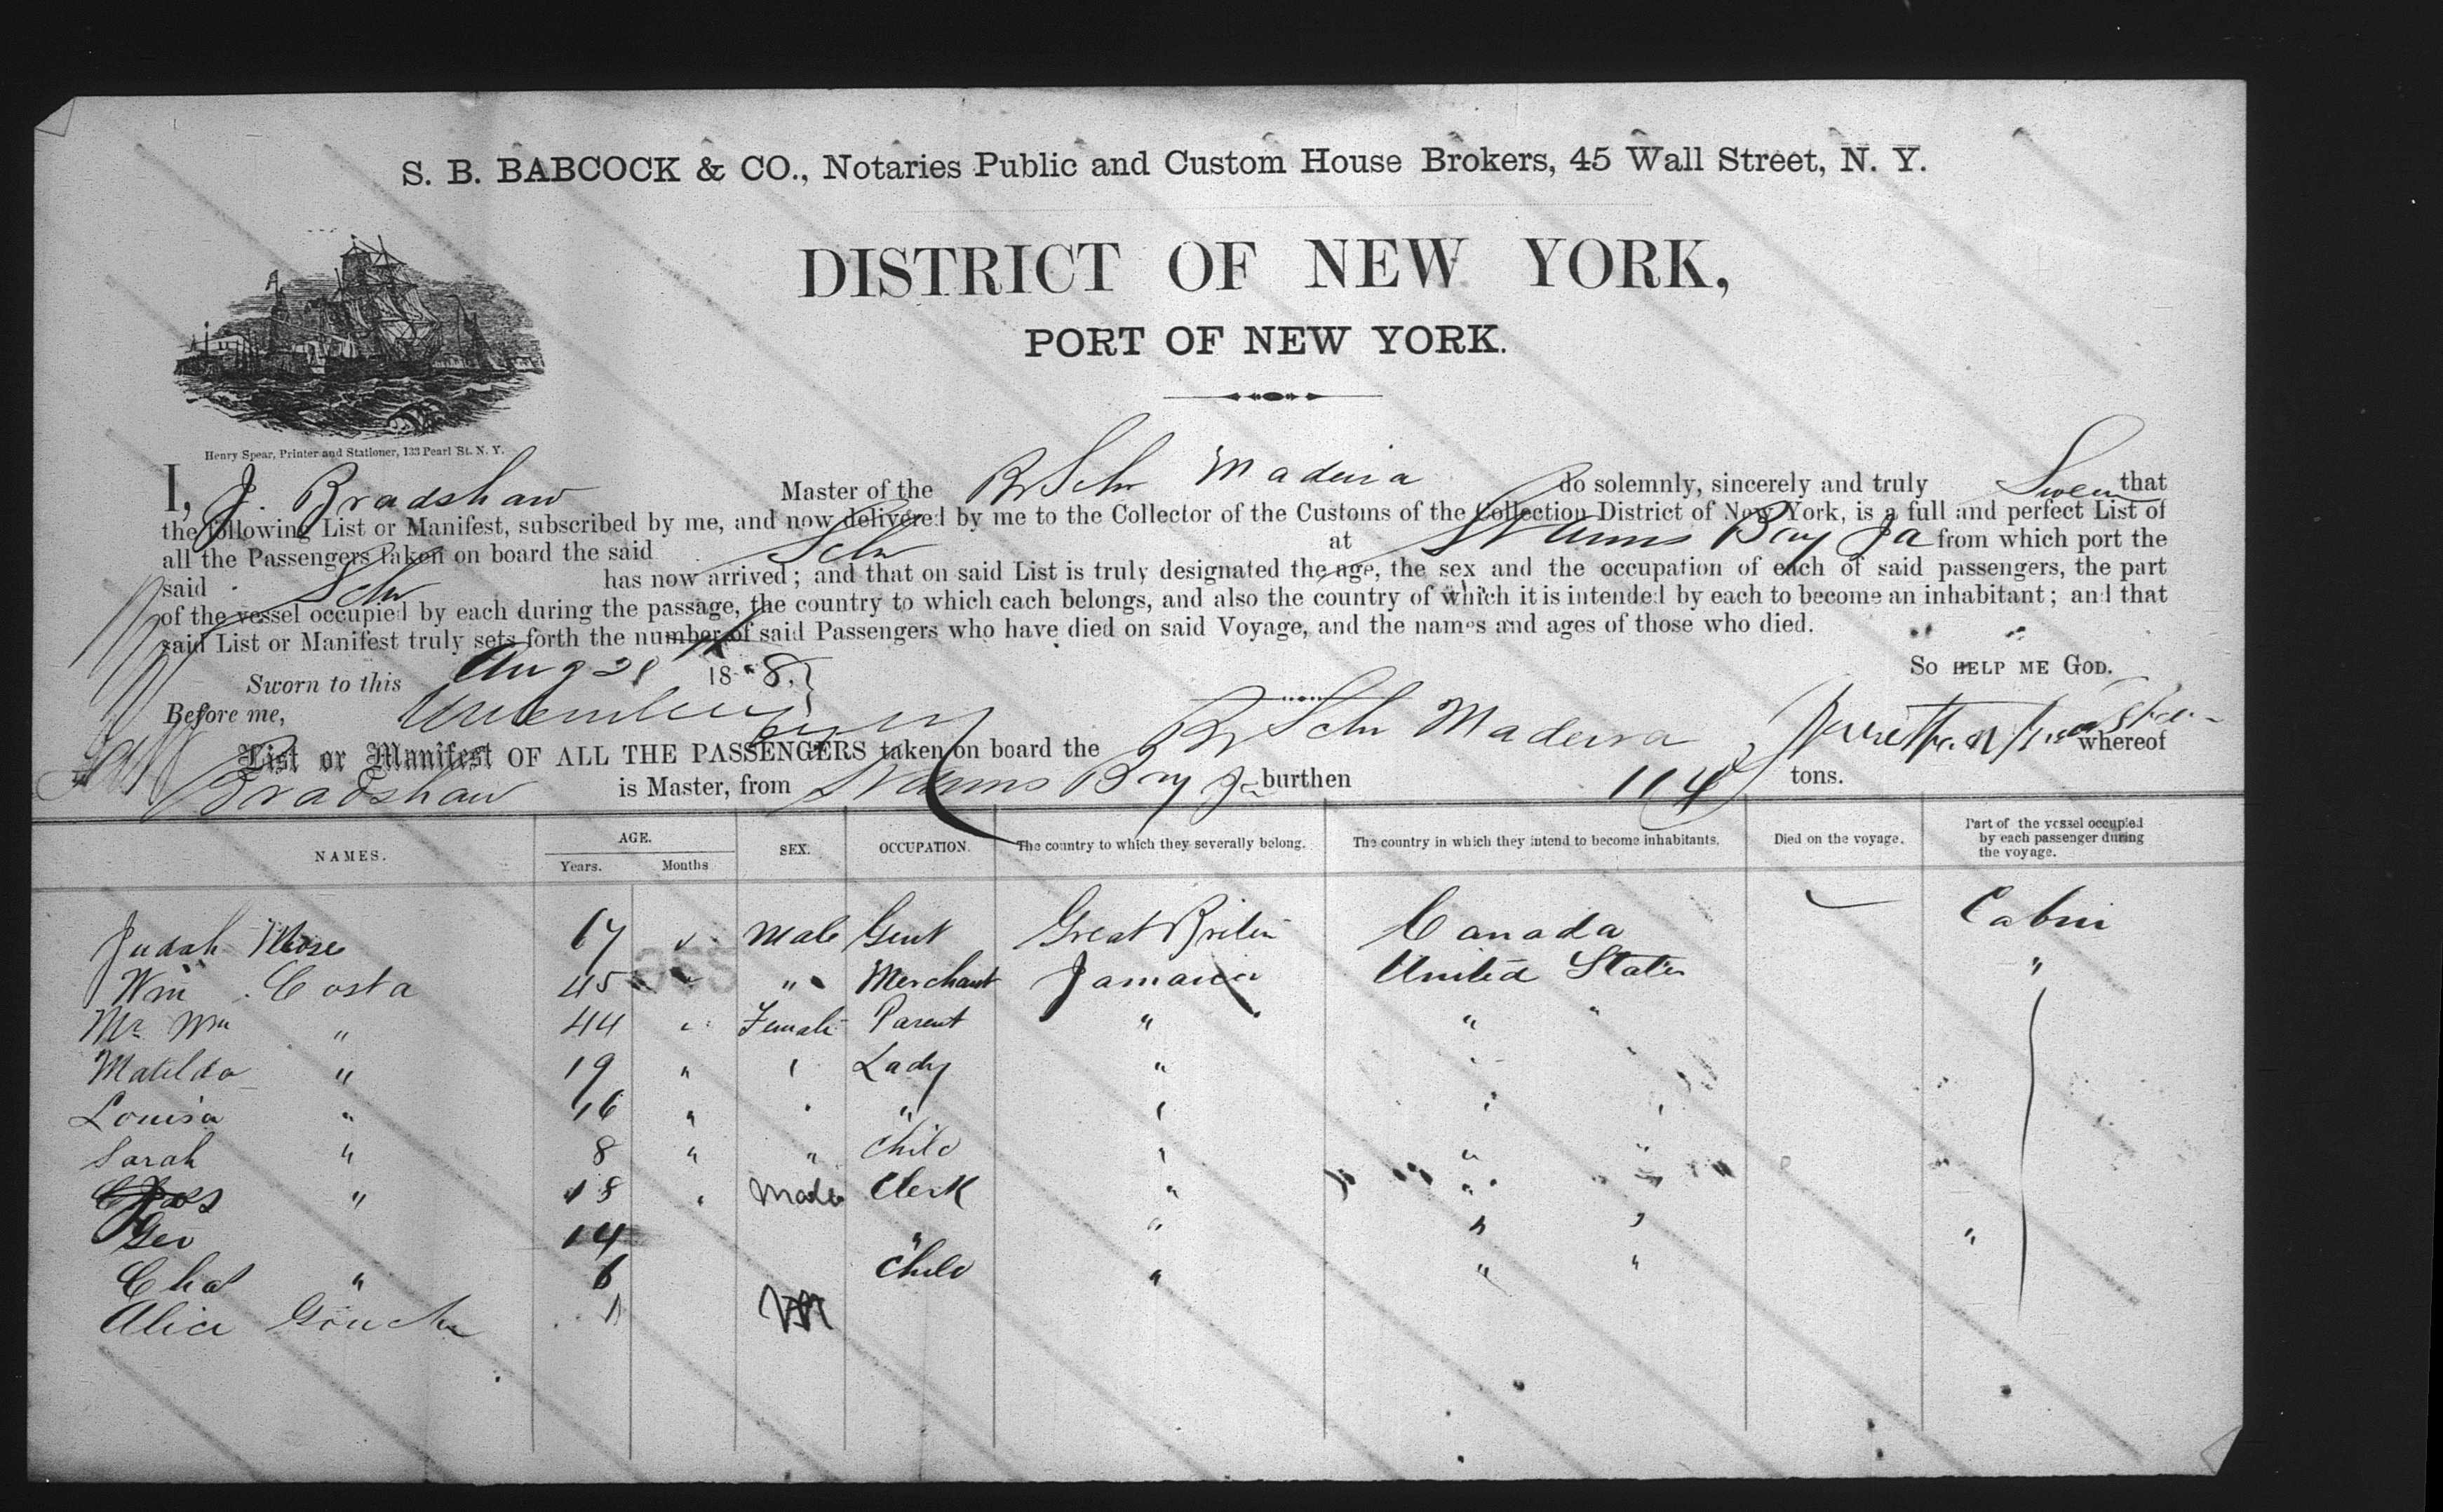 S. B. BABCOCK & CO., Notaries Public and Custom House Brokers, 45 Wall Street, N. Y.
DISTRICT OF NEW YORK,
PORT OF NEW YORK.
Henry Spear, Printer and Stationer, 133 Pearl St. N. Y.
I, J. Bradshaw Master of the Br Schr Madeira do solemnly, sincerely and truly Swear that
the following List or Manifest, subscribed by me, and now delivered by me to the Collector of the Customs of the Collection District of New York, is a full and perfect List of
all the Passengers taken on board the said Schr at St Anns Bay Ja from which port the
said Schr has now arrived; and that on said List is truly designated the age, the sex and the occupation of each of said passengers, the part
of the vessel occupied by each during the passage, the country to which each belongs, and also the country of which it is intended by each to become an inhabitant; and that
said List or Manifest truly sets forth the number of said Passengers who have died on said Voyage, and the names and ages of those who died.
So HELP ME GOD.
Sworn to this Aug 28 18 8.
Before me,
List or Manifest OF ALL THE PASSENGERS taken on board the Br Schr Madeira whereof
Bradshaw is Master, from St Anns Bay Ja burthen 114 tons.
NAMES. AGE. Years. Months SEX. OCCUPATION. The country to which they severally belong. The country in which they intend to become inhabitants. Died on the voyage. Part of the vessel occupied by each passenger during the voyage.
Judah Mose 67 " Male Gent Great Britin Canada Cabin
Wm Costa 45 " " Merchant Jamaica United States "
Mr Wm " 44 " Female Parent " " "
Matilda " 19 " " Lady " " "
Louisa " 16 " " " " " "
Sarah " 8 " " Child " " "
" 18 " Male Clerk " " "
Geo 14 " " " " "
Chas " 6 Child " " "
Alice